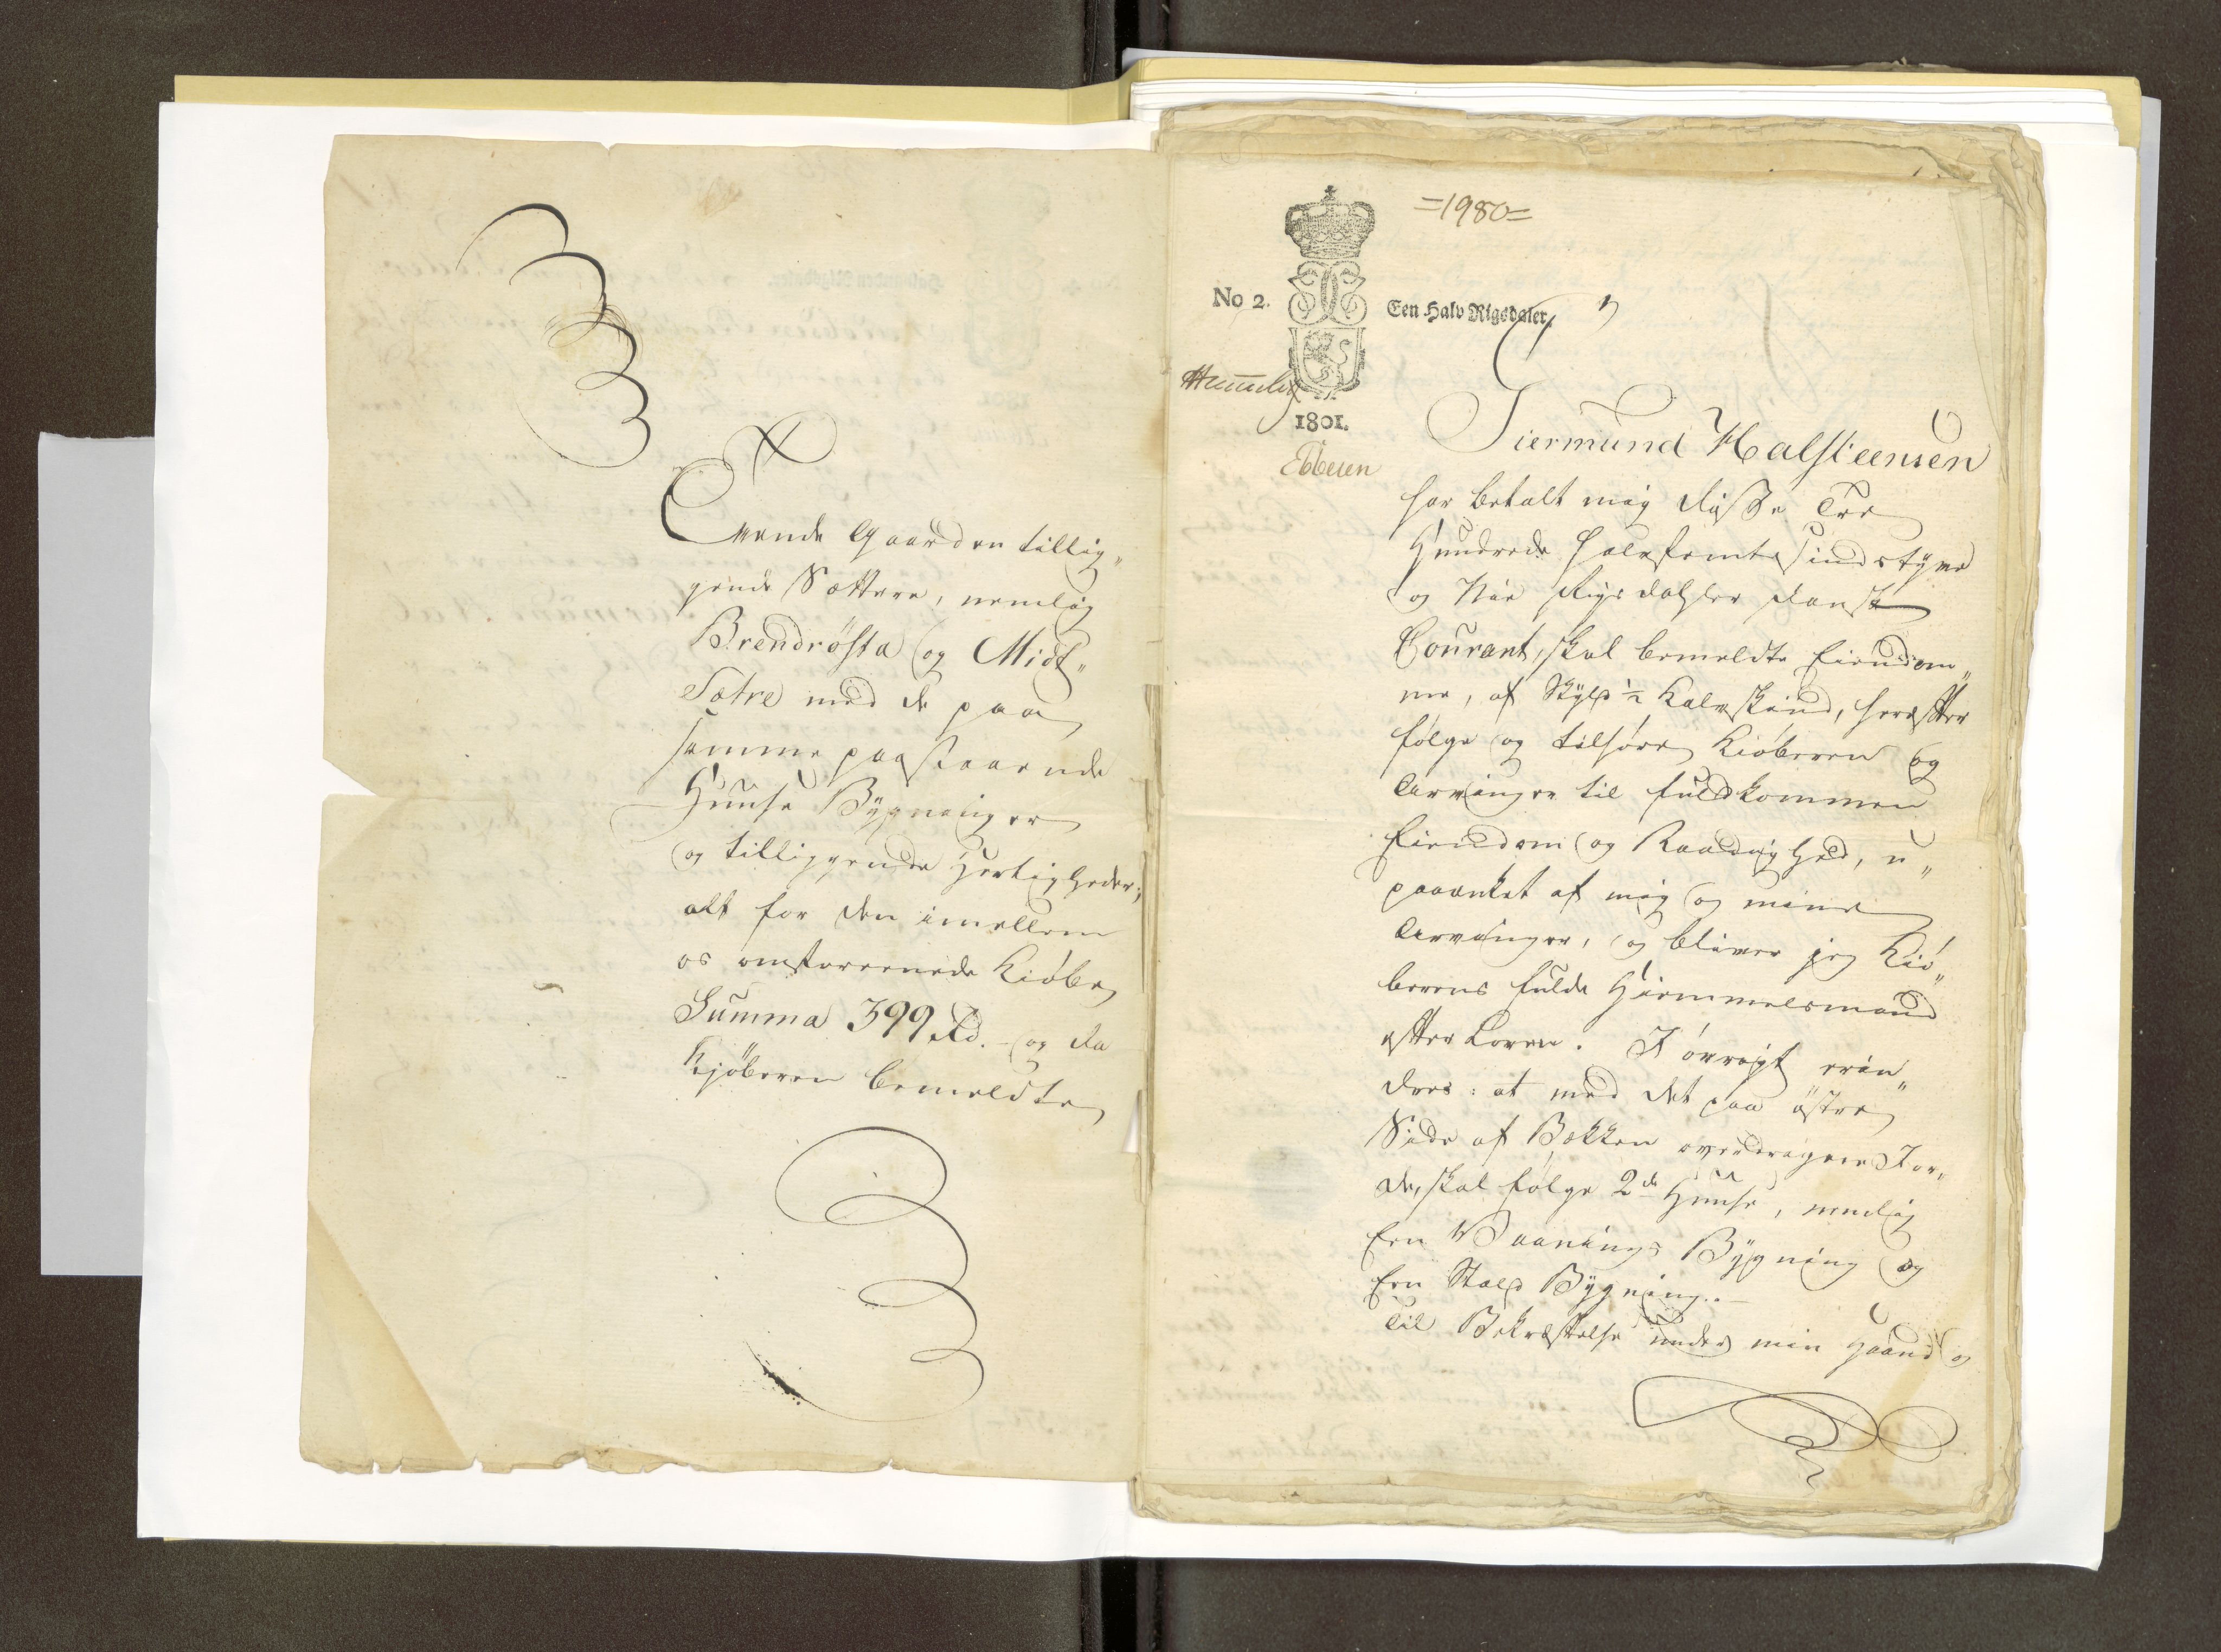 ernde Gaarden tillig„
gende Sættere, nemlig
Brendrösta og Midt„
Sætre med de paa
samme paastaaende
Huuse Bÿgninger
og tilliggende Herligheder;
alt for den imellem
os omforeenede Kiöbe
Summa 399 Rd. og da
Kjöberen bemeldte
=1980=
No 2.
Een Halv Rigsdaler.
1801.
Ebbesen
Giermund Halsteensen
har betalt mig disse Tre
Hundrede Halvfemtesindstÿve
og Nie Rigsdahler dansk
Courant, skal bemeldte Eiendom„
me, af Skÿld ½ Kalvskind, herefter
følge og tilhøre Kiöberen og
Arvinger til fuldkommen
Eiendom og Raadighed, u„
paaanket af mig og mine
Arvinger, og bliver jeg Kiö„
berens fulde Hiemmelsmand
efter Loven. I øvrigt erin„
dres: at med det paa östre
Side af Bækken overdragne Jor„
de, skal følge 2de Huuse, nemlig
Een Vaanings Bÿgning og
Een Stald Bÿgning.
Til Bekræftelse under min Haand og